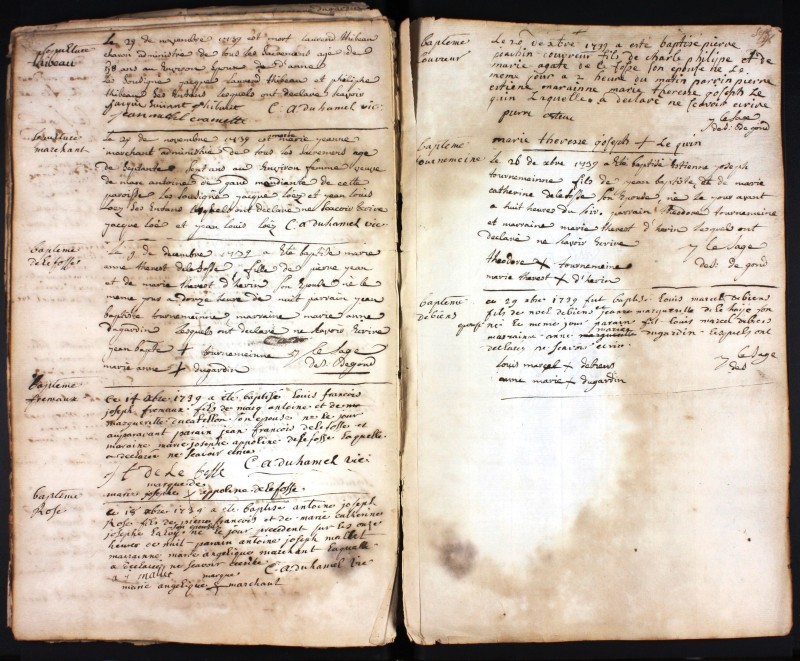 sepulture
tibeau
Le 29 de novembre 1739 est mort Laurend thibeau
administré de tous les sacremens age de
38 ans au Environ Epoux de d'annel
Les soussigne jacque Laurend thibeau et philiphe
thibeau ses Enfans Lesquels ont declare scavoir
C. A duhamel vic:
sepulture
marchant
Le 29 de novembre 1739 est morte marie jeanne
marchant administré de tous les sacremens age
de septante ans au Environ femme veuve
de marc antoine de gand mendiante de cette
paroisse les soussigne jacque Loez et jean Louis
Loez ses Enfans Lesquels ont declare ne scavoir Ecrire
jacque Loez et jean Louis Loez C. A duhamel vic
baptesme
de Le fosse
Le 9 de decembre 1739 a Esté baptise marie
anne therest delefosse fille de pierre jean
et de marie therest d'herin son Epouse né le
meme jour a douze heure de nuit parrain jean
baptiste tournemeinne, marraine marie anne
dugardin Lesquels ont declaré ne scavoir Ecrire
jean bapte + tournemeinne Le Sage
marie anne + dugardin des. Degond
baptesme
fremaux
Ce 14 xbre 1739 a été baptisé Louis francois
joseph fremaux fils de marcq antoine et de
margueritte ducatillon son epouse né le jour
auparavant parain jean francois delefosse et
maraine marie josephe appoline delefosse laquelle
a declaree ne scavoir ecrire
de Le fosse C. A duhamel vic:
marque de
marie josephe x appoline delefosse
baptême
Rose
ce 15 xbre 1739 a été baptisé antoine joseph
Rose fils de pierre francois et de marie catherinne
josephe son epouse né le jour precedent sur les onze
heures de nuit parain antoine joseph mallet
marainne marie angelique marchant laquelle
a declaree ne scavoir ecrire C. A duhamel vic
a j mallet marque
marie angelique x marchant
baptême
couvreur
Le 20 de xbre 1739 a esté baptisé pierre
joachin couvreur fils de charle philipe et de
marie agate de Le fosse son epouse né Le
meme jour a 2 heure du matin parain pierre
estiene, marainne marie theresse joseph Le
quin Laquelle a declaré ne scavoir ecrire
pierre estiene Le Sage
des. De gond
marie theresse joseph + Le quin
baptême
tournemeine
Le 26 de xbre 1739 a Eté baptisé Estienne joseph
tournemeinne fils de jean baptiste et de marie
catherine delefosse son Epouse, né Le jour avant
a huit heures du soir, parrain theodore tournemeine
et marraine marie therest d'herin Lesquels ont
declaré ne scavoir Ecrire
Le Sage
theodore x tournemeine des. de gond
marie therest x d'herin
baptême
debiens
ce 29 xbre 1739 fut baptisé Louis marcel debiens
fils de noel debiens jeanne margueritte de le haye son
epouse né le meme jour parain fil Louis marcel debiens
marraine anne marie dugardin lesquels ont
declarés ne scavoir ecrire
Le Sage
Louis marcel x debiens des
anne marie x dugardin